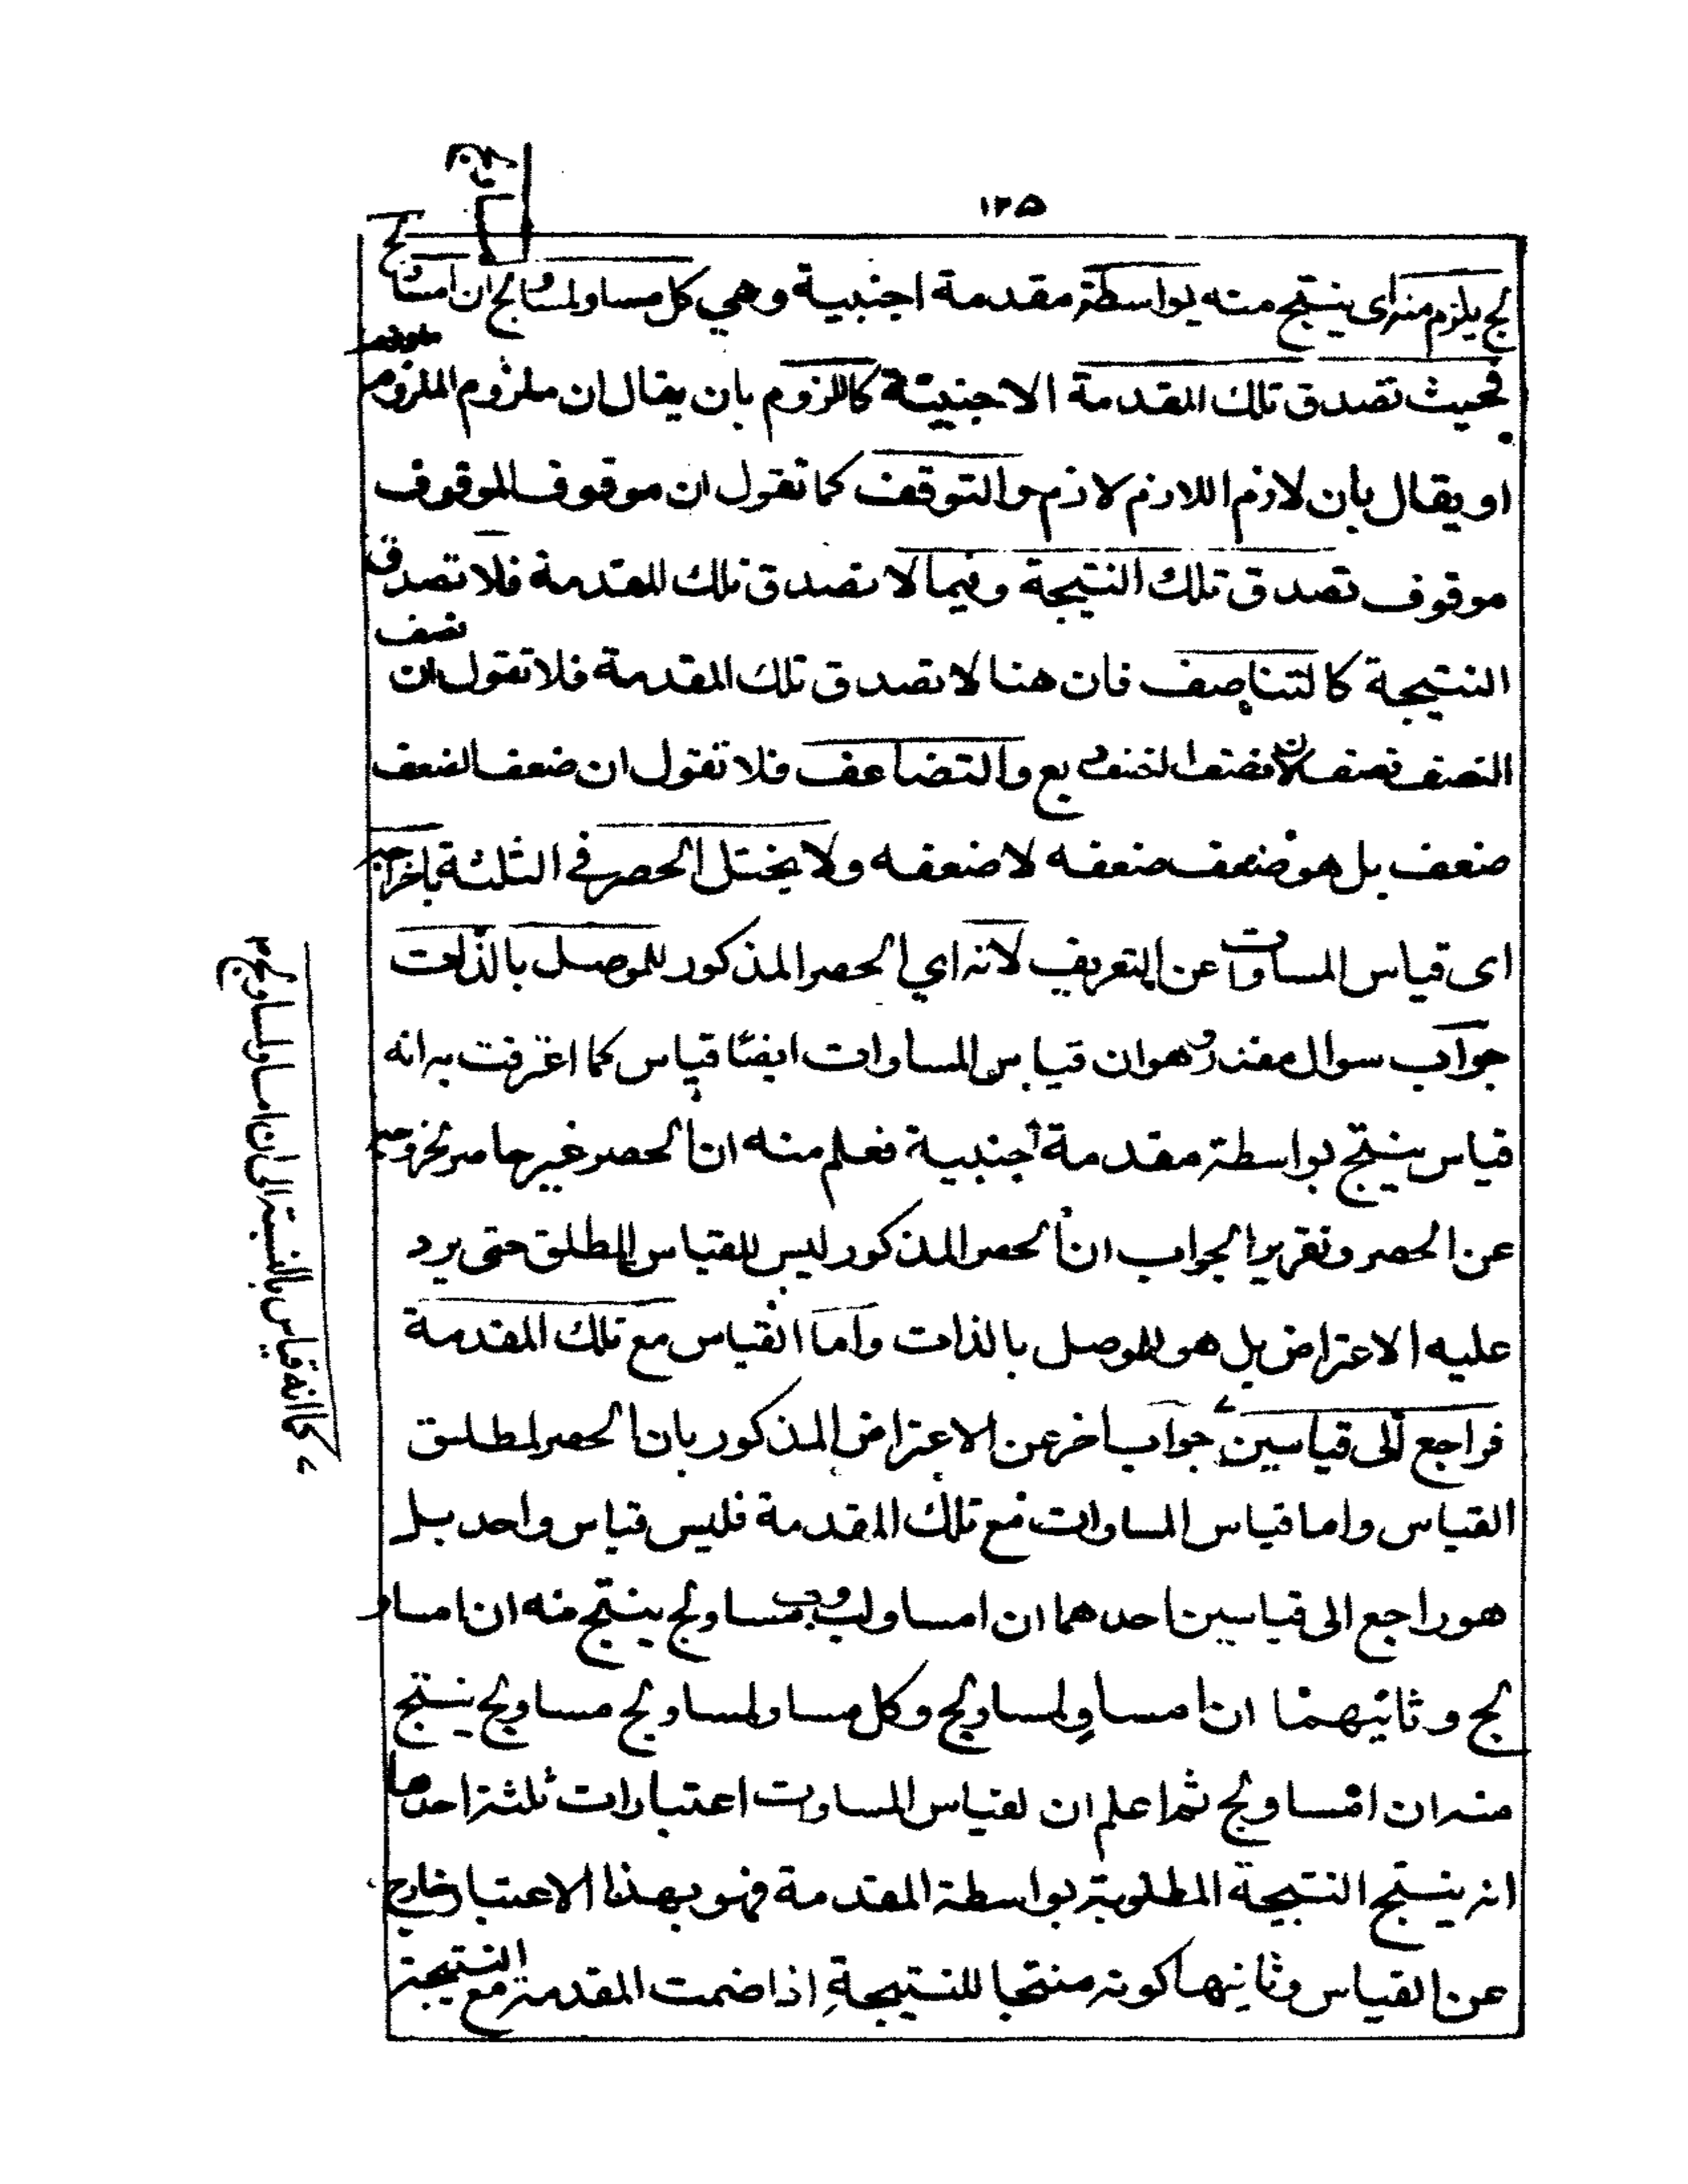 ١٢٥
لج يلزم منه اى ينتج منه بواسطة مقدمة اجنبية وهي كل مساو لمساو لج ان ا مساو لج
فحيث تصدق تلك المقدمة الاجنبية كاللزوم بان يقال ان ملزوم الملزوم ملزوم
او يقال بان لازم اللازم لازم والتوقف كما تقول ان موقوف الموقوف
موقوف تصدق تلك النتيجة وفيما لا تصدق تلك المقدمة فلا تصدق
النتيجة كالتناصف فان هنا لا تصدق تلك المقدمة فلا تقول ان نصف
النصف نصف لان نصف النصف ربع والتضاعف فلا تقول ان ضعف الضعف
ضعف بل هو ضعف ضعفه لا ضعفه ولا يختل الحصر في الثلثة باخراجه
اى قياس المساوات عن التعريف لانه اي الحصر المذكور للموصل بالذات
جواب سوال مقدر وهو ان قياس المساوات ايضا قياس كما اعترفت به انه
قياس ينتج بواسطة مقدمة اجنبية فعلم منه ان الحصر غير حاصر لخروجه
عن الحصر وتقرير الجواب ان الحصر المذكور ليس للقياس المطلق حتى يرد
عليه الاعتراض بل هو للموصل بالذات واما القياس مع تلك المقدمة
فراجع الى قياسين جواب اخر عن الاعتراض المذكور بان الحصر لمطلق
القياس واما قياس المساوات مع تلك المقدمة فليس قياس واحد بل
هو راجع الى قياسين احدهما ان ا مساو لب وب مساو لج ينتج منه ان ا مساو
لج وثانيهما ان ا مساو لمساو لج وكل مساو لمساو لج مساو لج ينتج
منه ان ا مساو لج ثم اعلم ان لقياس المساوات اعتبارات ثلثة احدها
انه ينتج النتيجة المطلوبة بواسطة المقدمة فهو بهذا الاعتبار خارج
عن القياس وثانيها كونه منتجا للنتيجة اذا ضمت المقدمة مع النتيجة
كما انه قياس بالنسبة الى ان ا مساو لمساو لج